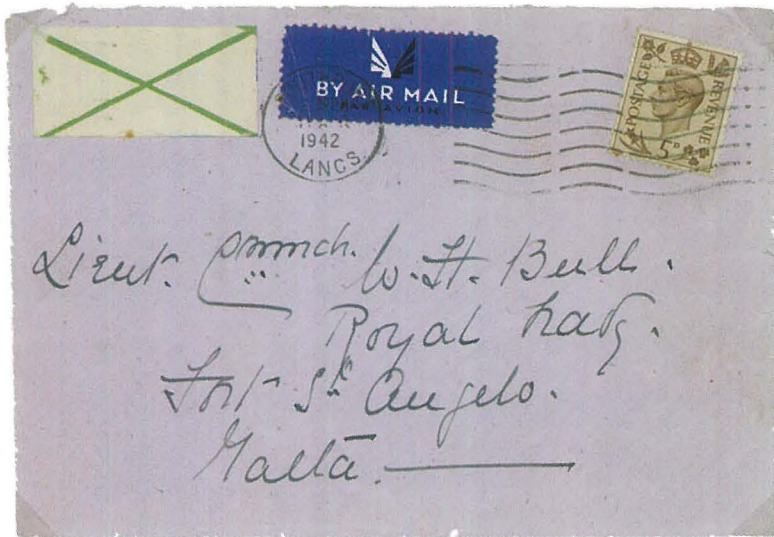 BY AIR MAIL
PAR AVION
1942
LANCS.
POSTAGE REVENUE
5D
Lieut. Commdr. W. H. Bull.
Royal Navy.
Fort St Angelo.
Malta.